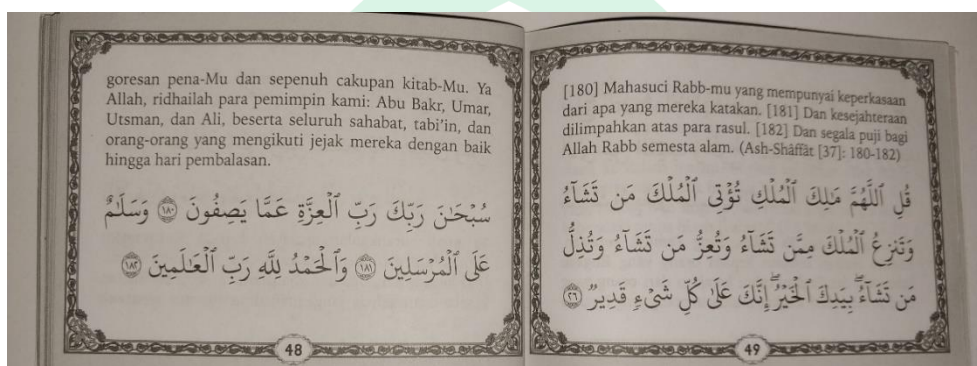 goresan pena-Mu dan sepenuh cakupan kitab-Mu. Ya
Allah, ridhailah para pemimpin kami: Abu Bakr, Umar,
Utsman, dan Ali, beserta seluruh sahabat, tabi'in, dan
orang-orang yang mengikuti jejak mereka dengan baik
hingga hari pembalasan.
سُبْحَٰنَ رَبِّكَ رَبِّ ٱلْعِزَّةِ عَمَّا يَصِفُونَ ١٨٠ وَسَلَٰمٌ
عَلَى ٱلْمُرْسَلِينَ ١٨١ وَٱلْحَمْدُ لِلَّهِ رَبِّ ٱلْعَٰلَمِينَ ١٨٢
48
[180] Mahasuci Rabb-mu yang mempunyai keperkasaan
dari apa yang mereka katakan. [181] Dan kesejahteraan
dilimpahkan atas para rasul. [182] Dan segala puji bagi
Allah Rabb semesta alam. (Ash-Shâffât [37]: 180-182)
قُلِ ٱللَّهُمَّ مَٰلِكَ ٱلْمُلْكِ تُؤْتِى ٱلْمُلْكَ مَن تَشَآءُ
وَتَنزِعُ ٱلْمُلْكَ مِمَّن تَشَآءُ وَتُعِزُّ مَن تَشَآءُ وَتُذِلُّ
مَن تَشَآءُ ۖ بِيَدِكَ ٱلْخَيْرُ ۖ إِنَّكَ عَلَىٰ كُلِّ شَىْءٍ قَدِيرٌ ٢٦
49